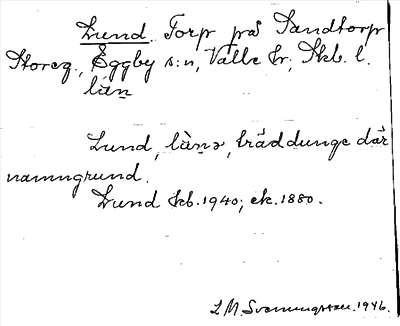 Lund. Torp på Sandtorp
Storeg., Eggby s:n, Valle hr; Skb. l.
lùn̲
Lund, lùnə, träddunge där
namngrund.
Lund kb. 1940; ek. 1880.
L M. 1946.